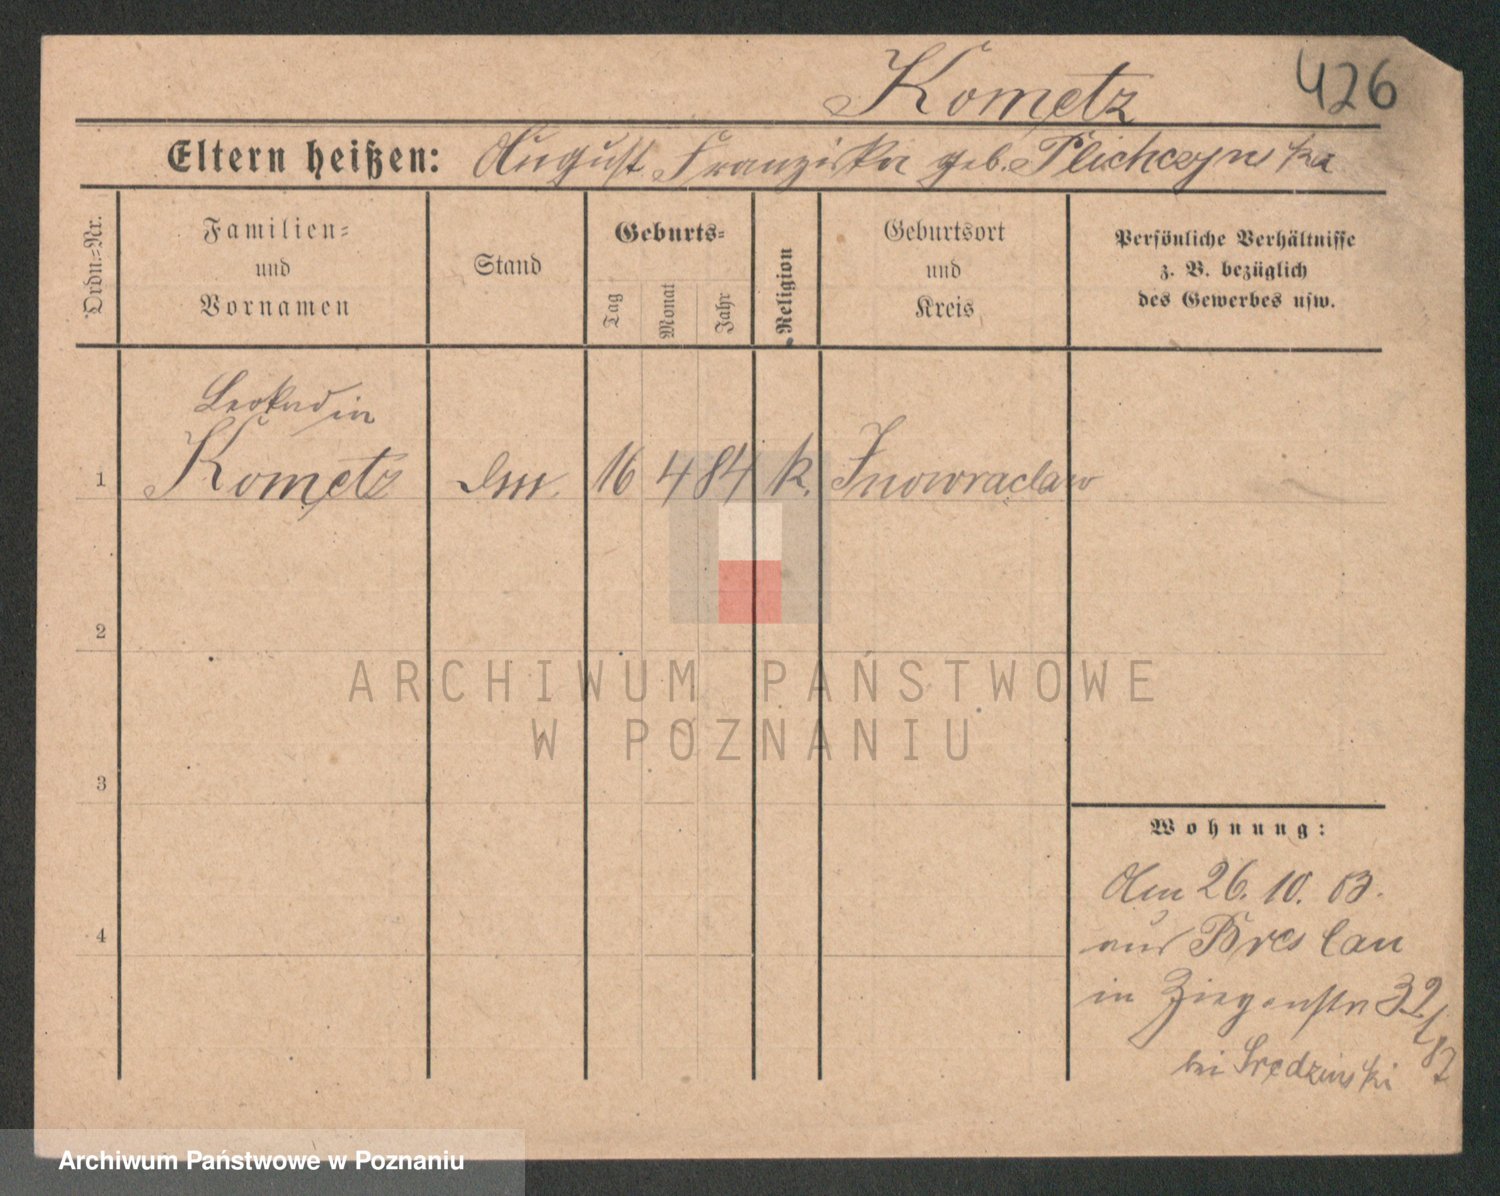 Kometz
426
Eltern heißen: August Franziska geb. Plichczynska
Ordn.-Nr.
Familien-
und
Vornamen
Stand
Geburts-
Tag
Monat
Jahr
Religion
Geburtsort
und
Kreis
Persönliche Verhältnisse
z. B. bezüglich
des Gewerbes usw.
Leokadia
1 Kometz 16 4 84 k. Inowraclaw
2
ARCHIWUM PAŃSTWOWE
W POZNANIU
3
Wohnung:
Am 26. 10. 03.
4
aus Breslau
in Ziegenstr 32/87
bei Sredzinski
Archiwum Państwowe w Poznaniu